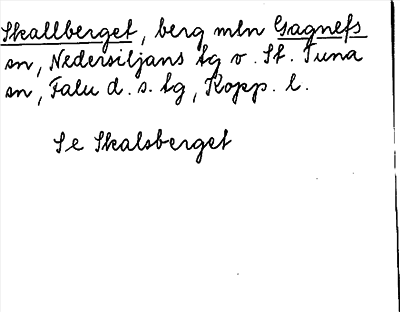 Skallberget, berg mln Gagnefs
sn, Nedersiljans tg o. St. Tuna
sn, Falu d. s. tg, Kopp. l.
Se Skalsberget